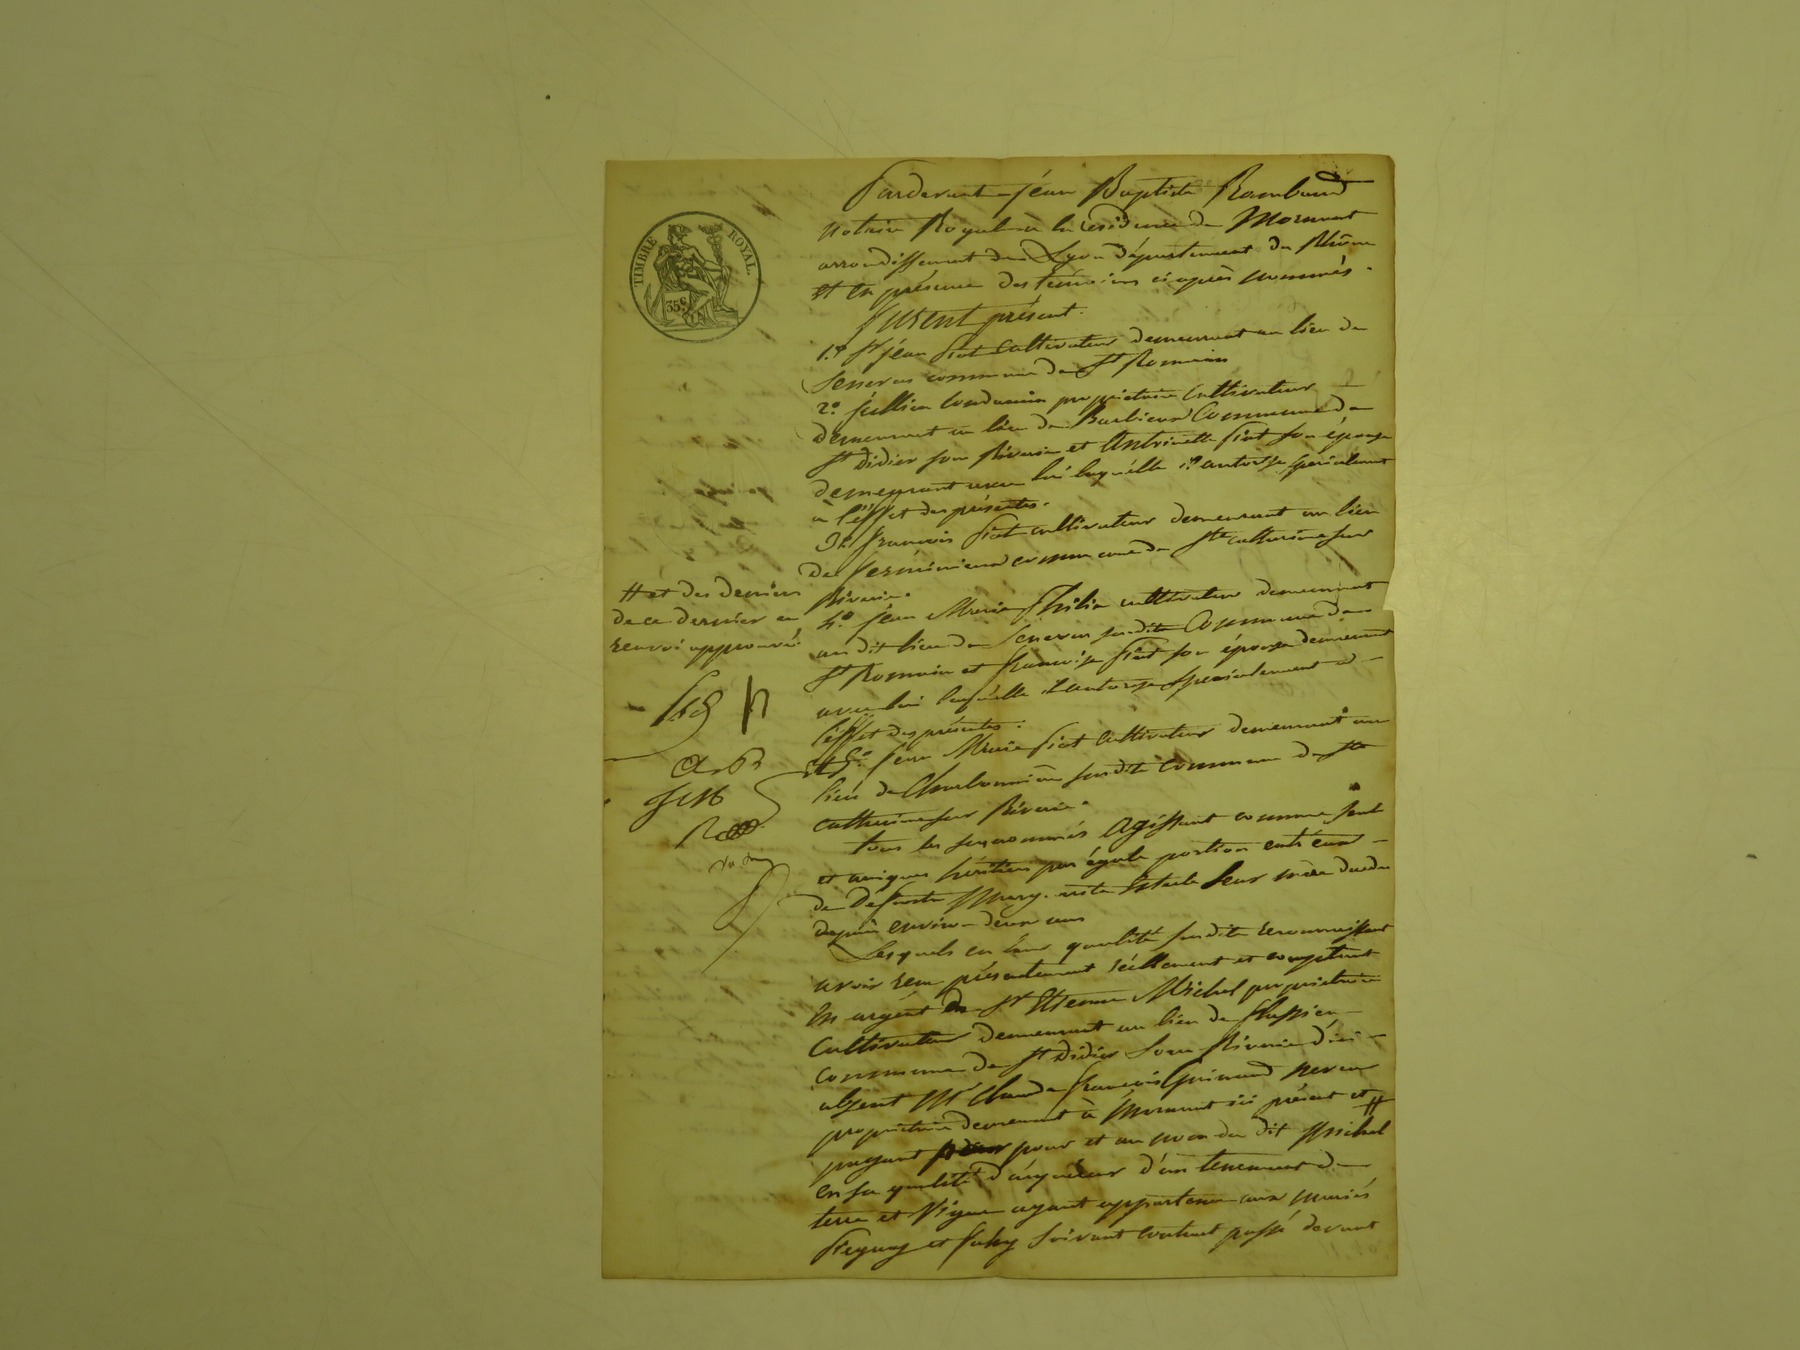 TIMBRE ROYAL.
35 C
Pardevant jéan Baptiste Rambaud
Notaire Royal à la résidence de Mornant
arrondissement de Lyon département du Rhône
et en présence des témoins ciaprès nommés.
furent présent.
1.º Sr jéan Piot Cultivateur demeurant au lieu de
commune de St Romain
2.º propriétaire Cultivateur
demeurant au lieu de Commune de
St didier sous Riverie et Antoinette Piot son épouse
demeurant avec lui laquélle il autorise spécialement
à l'éffet des présentes.
3.º françois Piot cultivateur demeurant au lieu
de commune de Ste catherine sur
Riverie.
4.º jéan Marie cultivateur demeurant
au dit lieu de susdite Commune de
St Romain et françoise Piot son épouse demeurant
avec lui laquélle il autorise spécialement à
l'éffet des présentes.
et 5.º jean Marie Piot Cultivateur demeurant au
lieu de Charbonnière susdite commune de Ste
catherine sur Riverie.
tous les surnommés agissant comme seuls
et uniques héritiers par égale portion entr'eux
de défunte leur mère décédée
depuis environ deux ans
Lesquels en leur qualité susdite reconnaissent
avoir reçu présentement réellement et comptant
en argent de Sr Etienne Michel propriétaire
Cultivateur demeurant au lieu de
commune de St Didier sous Riverie d'ici
absent Mr Claude françois Guinand
propriétaire demeurant à Mornant ici présent et
payant pour et au nom du dit Michel
en sa qualité d'acquéreur d'un tenement de
terre et Vigne ayant appartenu aux mariés
et suivant contrat passé devant
H et des deniers
de ce dernier en
renvoi approuvé